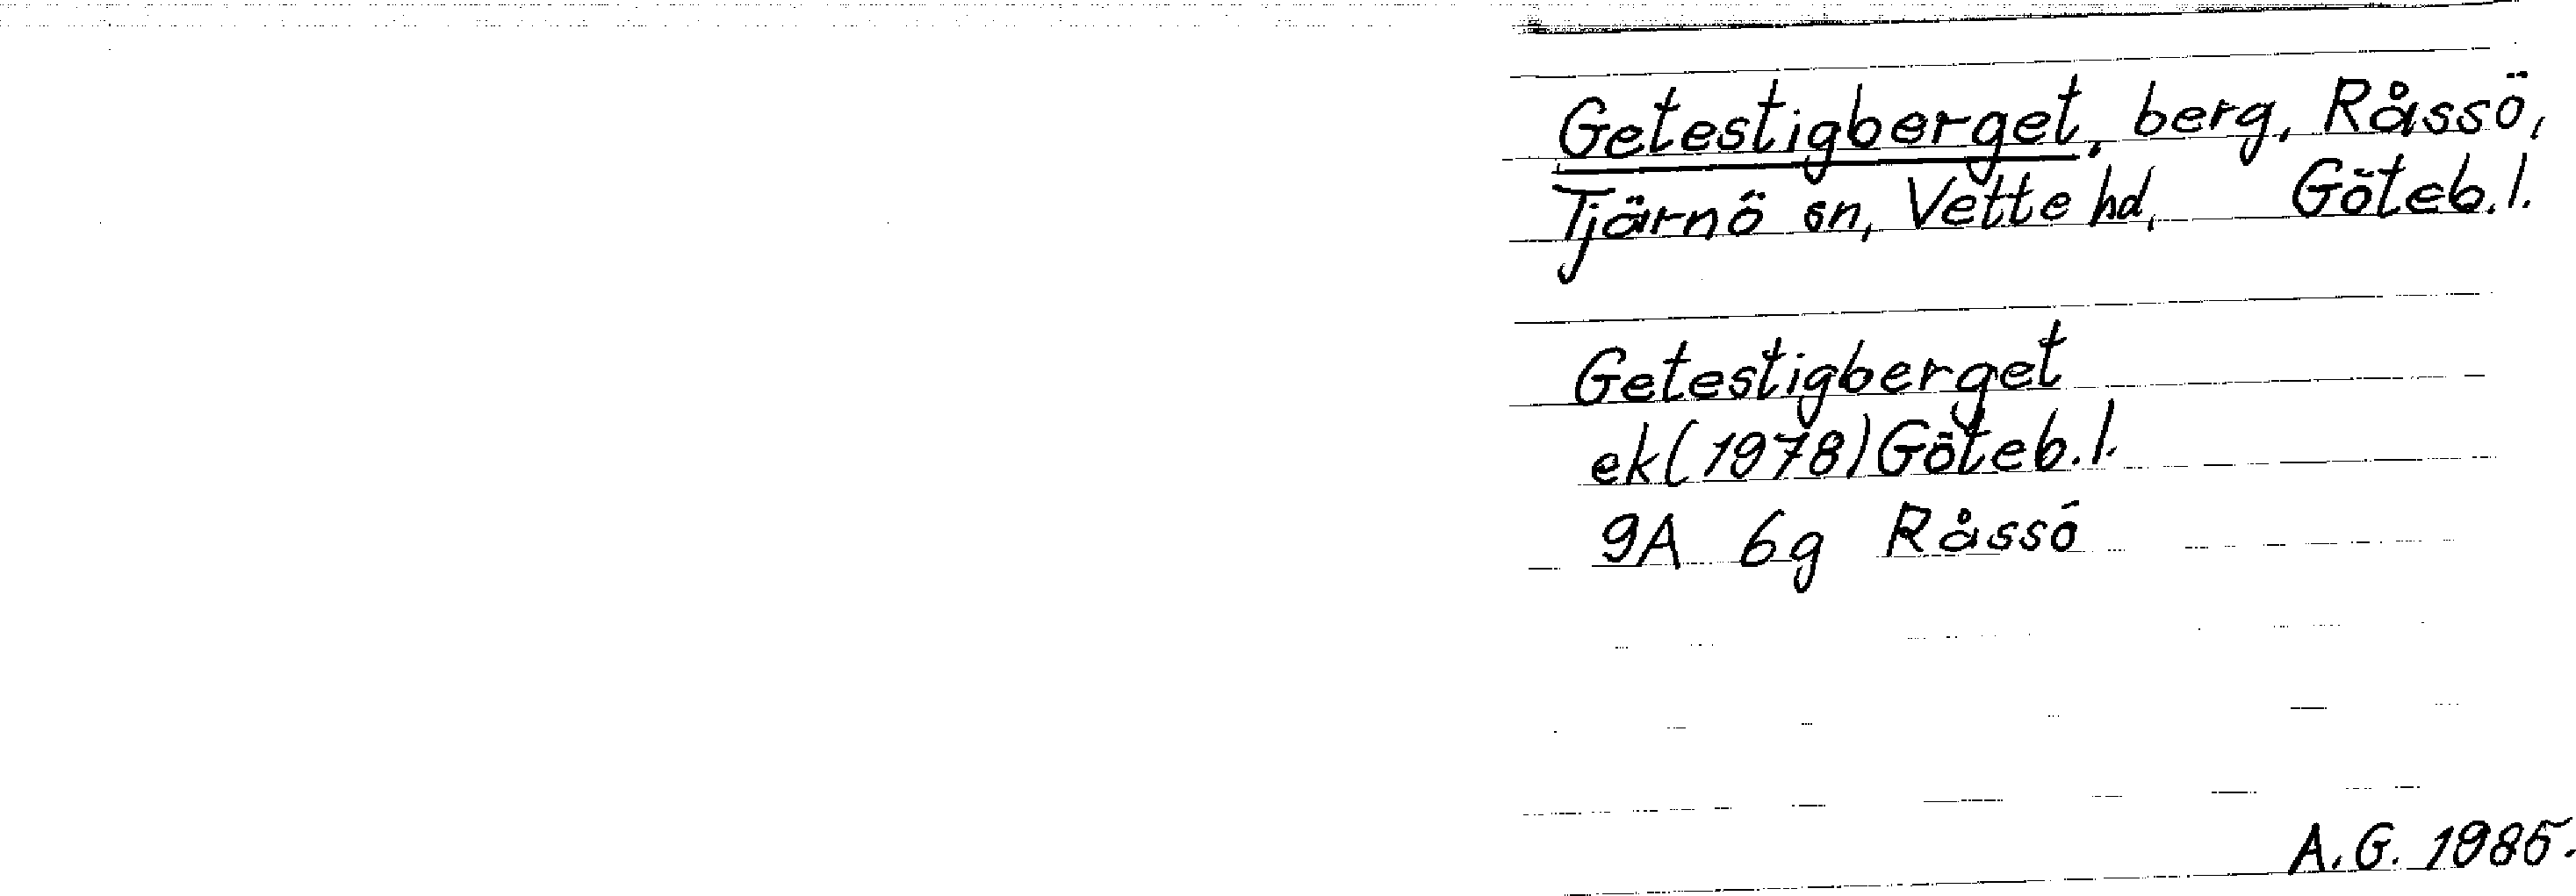 Getestigberget, berg, Råssö,
Tjärnö sn, Vette hd, Göteb.l.
Getestigberget
ek(1978)Göteb.l.
9A 6g Råssö
A.G. 1985.